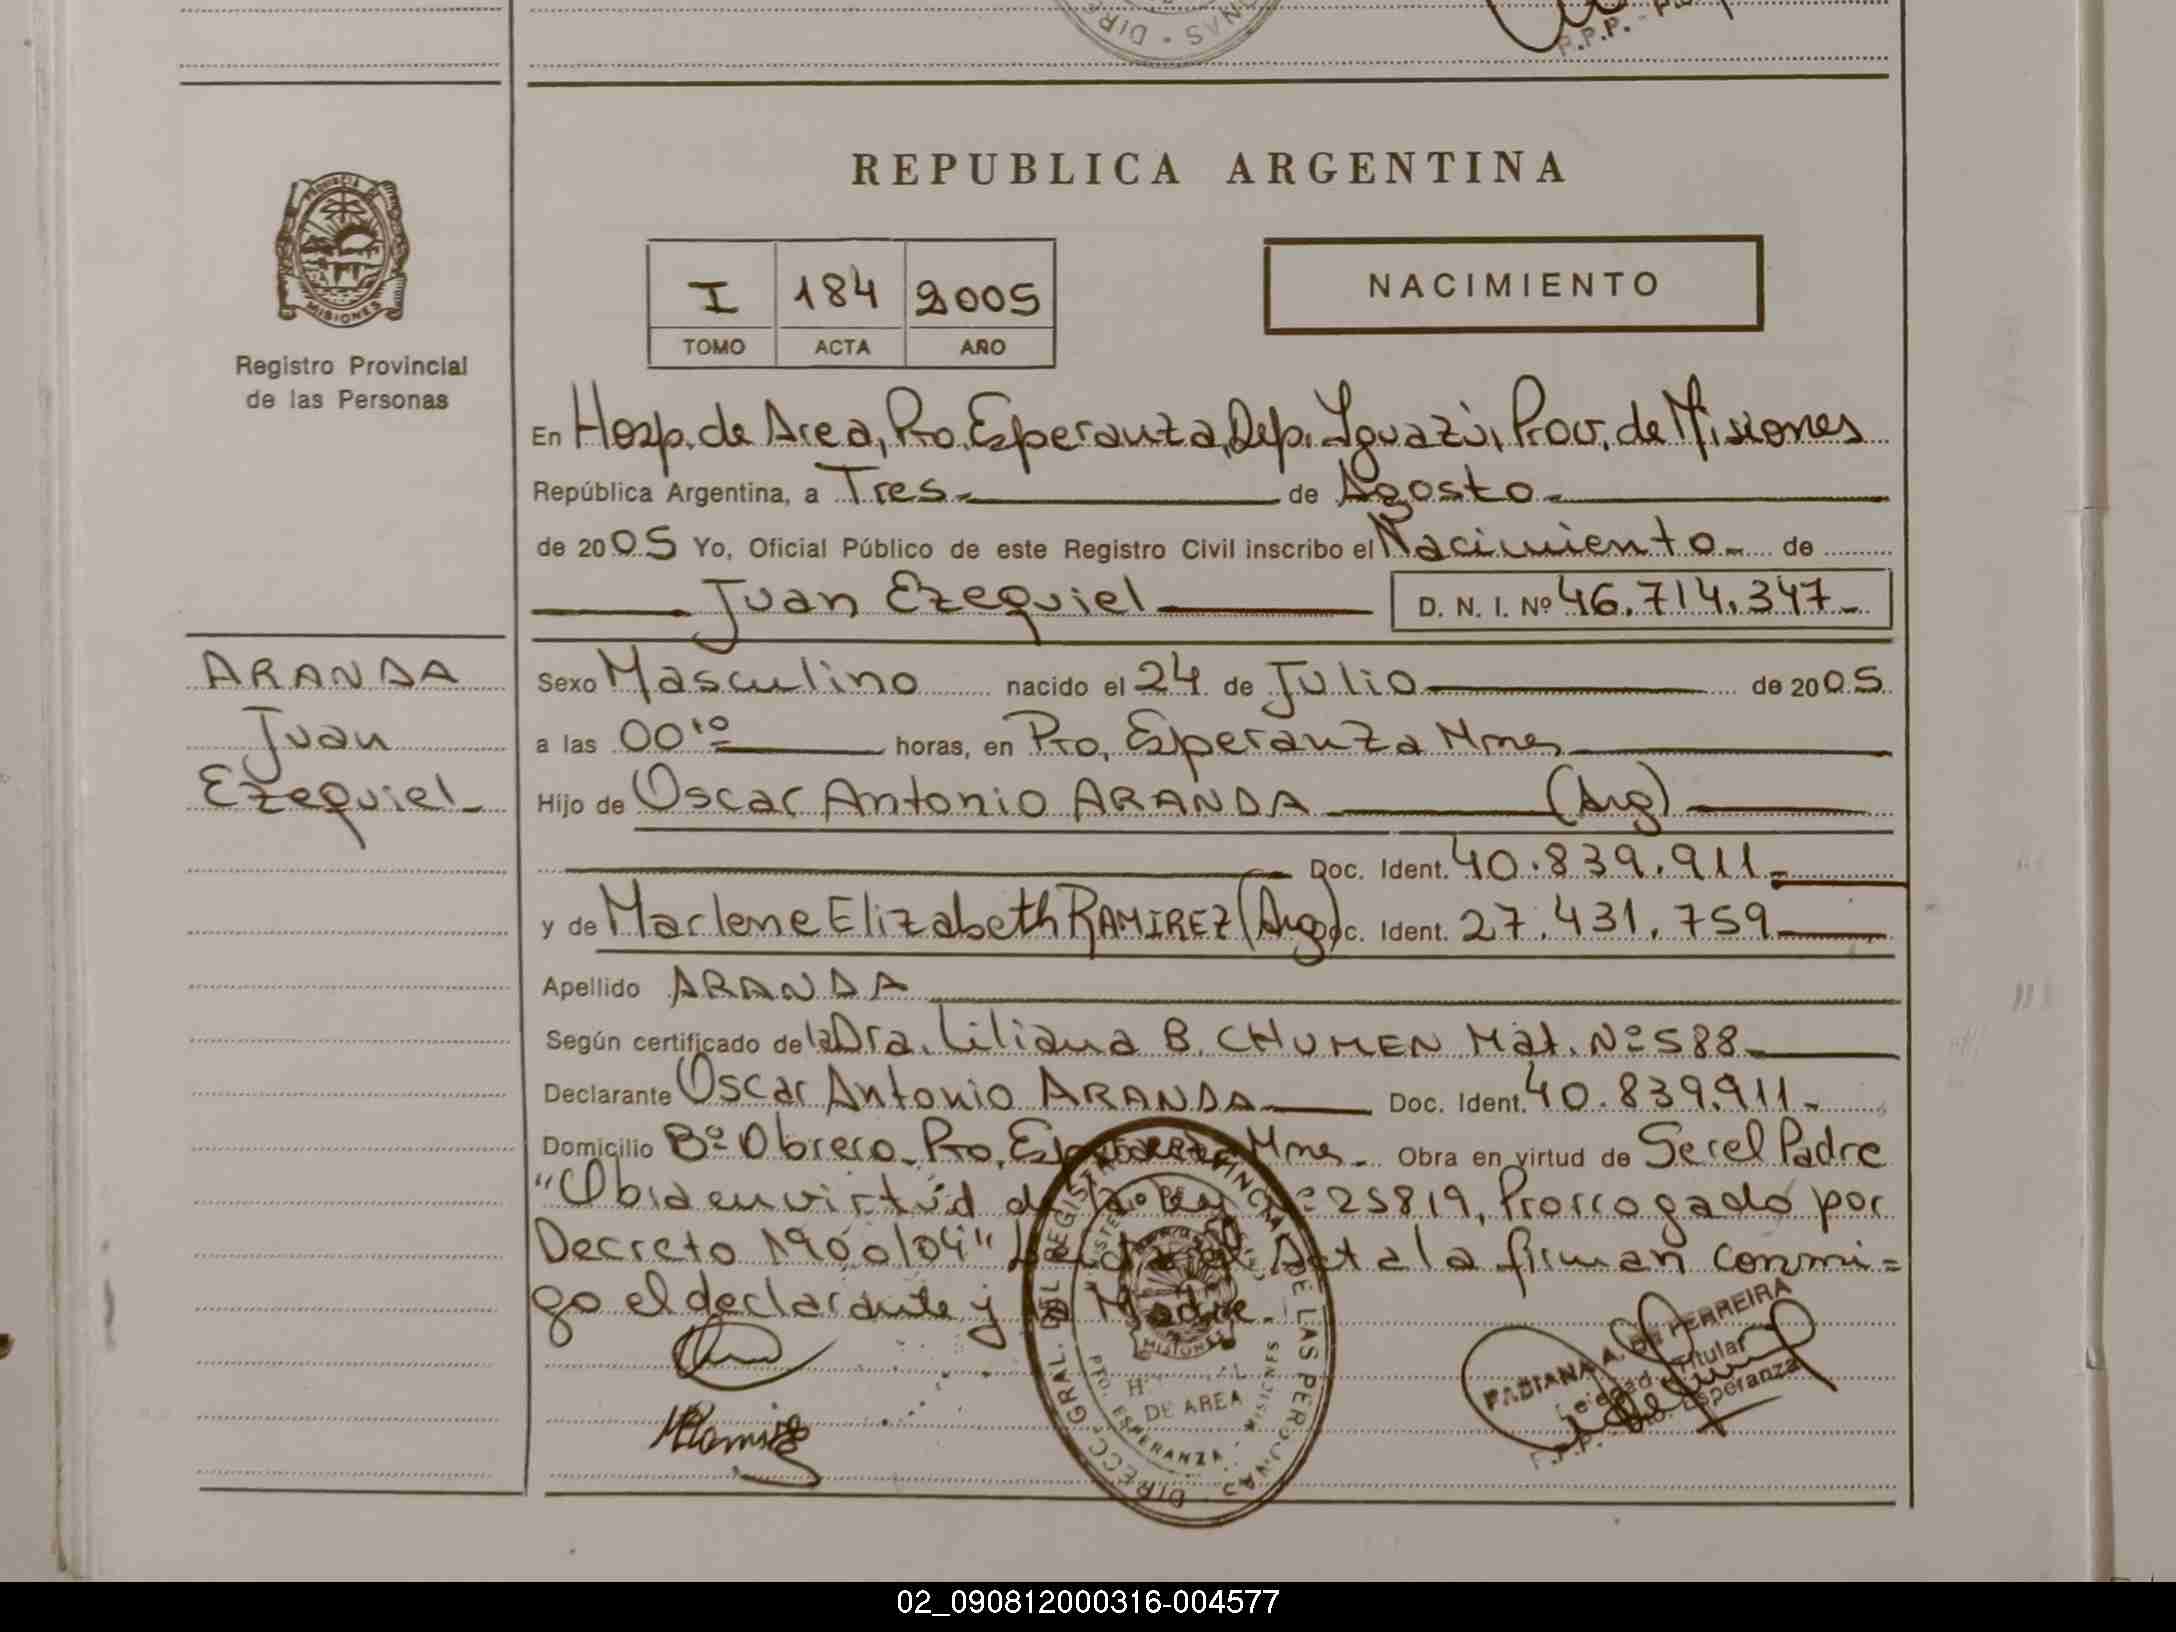 DIRE · NAS
P.P.P. -
REPUBLICA ARGENTINA
PROVINCIA
MISIONES
Registro Provincial
de las Personas
I 184 2005
TOMO ACTA AÑO
NACIMIENTO
En Hosp. de Area, Pto. Esperanza, Dep. Iguazú, Prov. de Misiones
República Argentina, a Tres.- de Agosto.-
de 2005 Yo, Oficial Público de este Registro Civil inscribo el Nacimiento.- de
Juan Ezequiel D. N. I. Nº 46.714.347.-
ARANDA
Juan
Ezequiel.-
Sexo Masculino nacido el 24 de Julio de 2005
a las 00'º horas, en Pto. Esperanza Mnes
Hijo de Oscar Antonio ARANDA (Arg)
Doc. Ident. 40.839.911.-
y de Marlene Elizabeth RAMIREZ (Arg) Doc. Ident. 27.431.759
Apellido ARANDA
Según certificado de la Dra. Liliana B. CHUMEN Mat. Nº 588.-
Declarante Oscar Antonio ARANDA Doc. Ident. 40.839.911.-
Domicilio Bº Obrero. Pto. Esperanza Mnes.- Obra en virtud de Ser el Padre
"Obra en virtud de la Ley Nº 25819, Prorrogado por
Decreto 1900/04" Leída el Acta la firman conmi=
go el declarante y la Madre.
MRamirez
DIRECC. GRAL. DEL REGISTRO PROVINCIAL DE LAS PERSONAS
MISIONES
DE AREA
PTO. ESPERANZA - MISIONES
FABIANA A. DE FERREIRA
Titular
R.P.P. - Pto. Esperanza
02_090812000316-004577